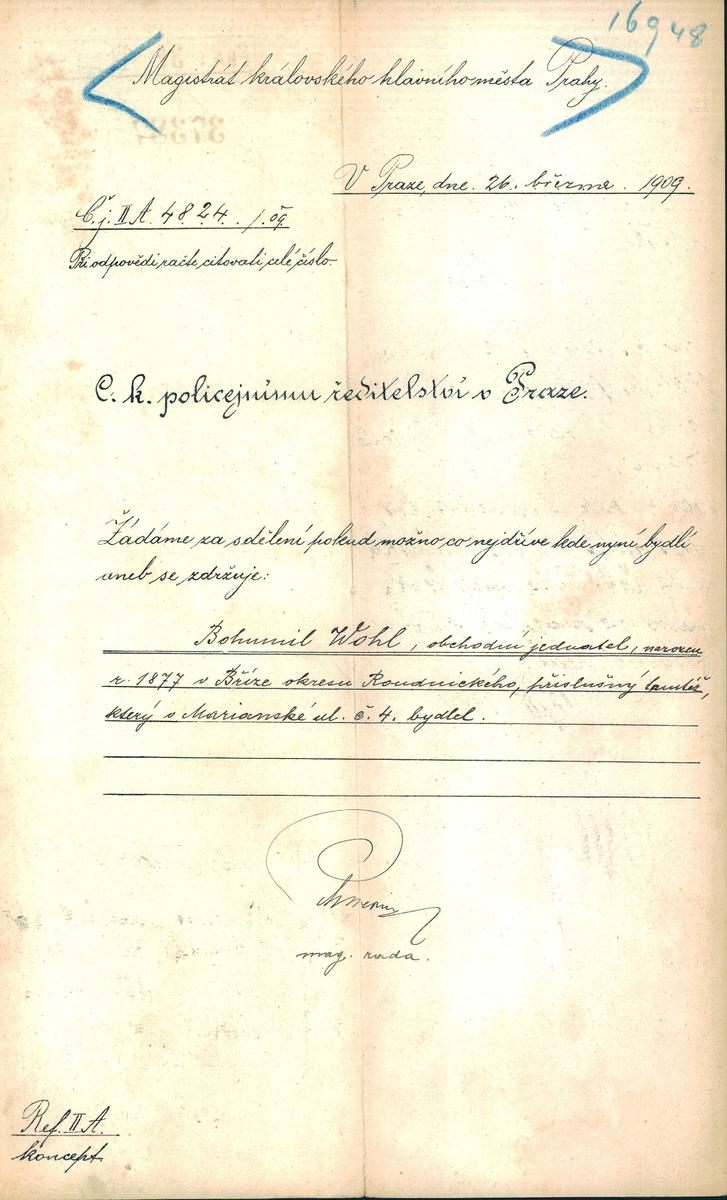 16948
Magistrát královského hlavního města Prahy.
V Praze, dne 26. března 1909.
Č.j. II A. 4824 /.09
Při odpovědi račte citovati celé číslo.
C. k. policejnímu ředitelství v Praze.
Žádáme za sdělení pokud možno co nejdříve kde nyní bydlí
aneb se zdržuje:
Bohumil Wohl, obchodní jednatel, narozen
r. 1877 v Bříze okresu Roudnického, příslušný tamtéž,
který v Marianské ul. č. 4. bydlel.
mag. rada.
Ref. II A.
koncept